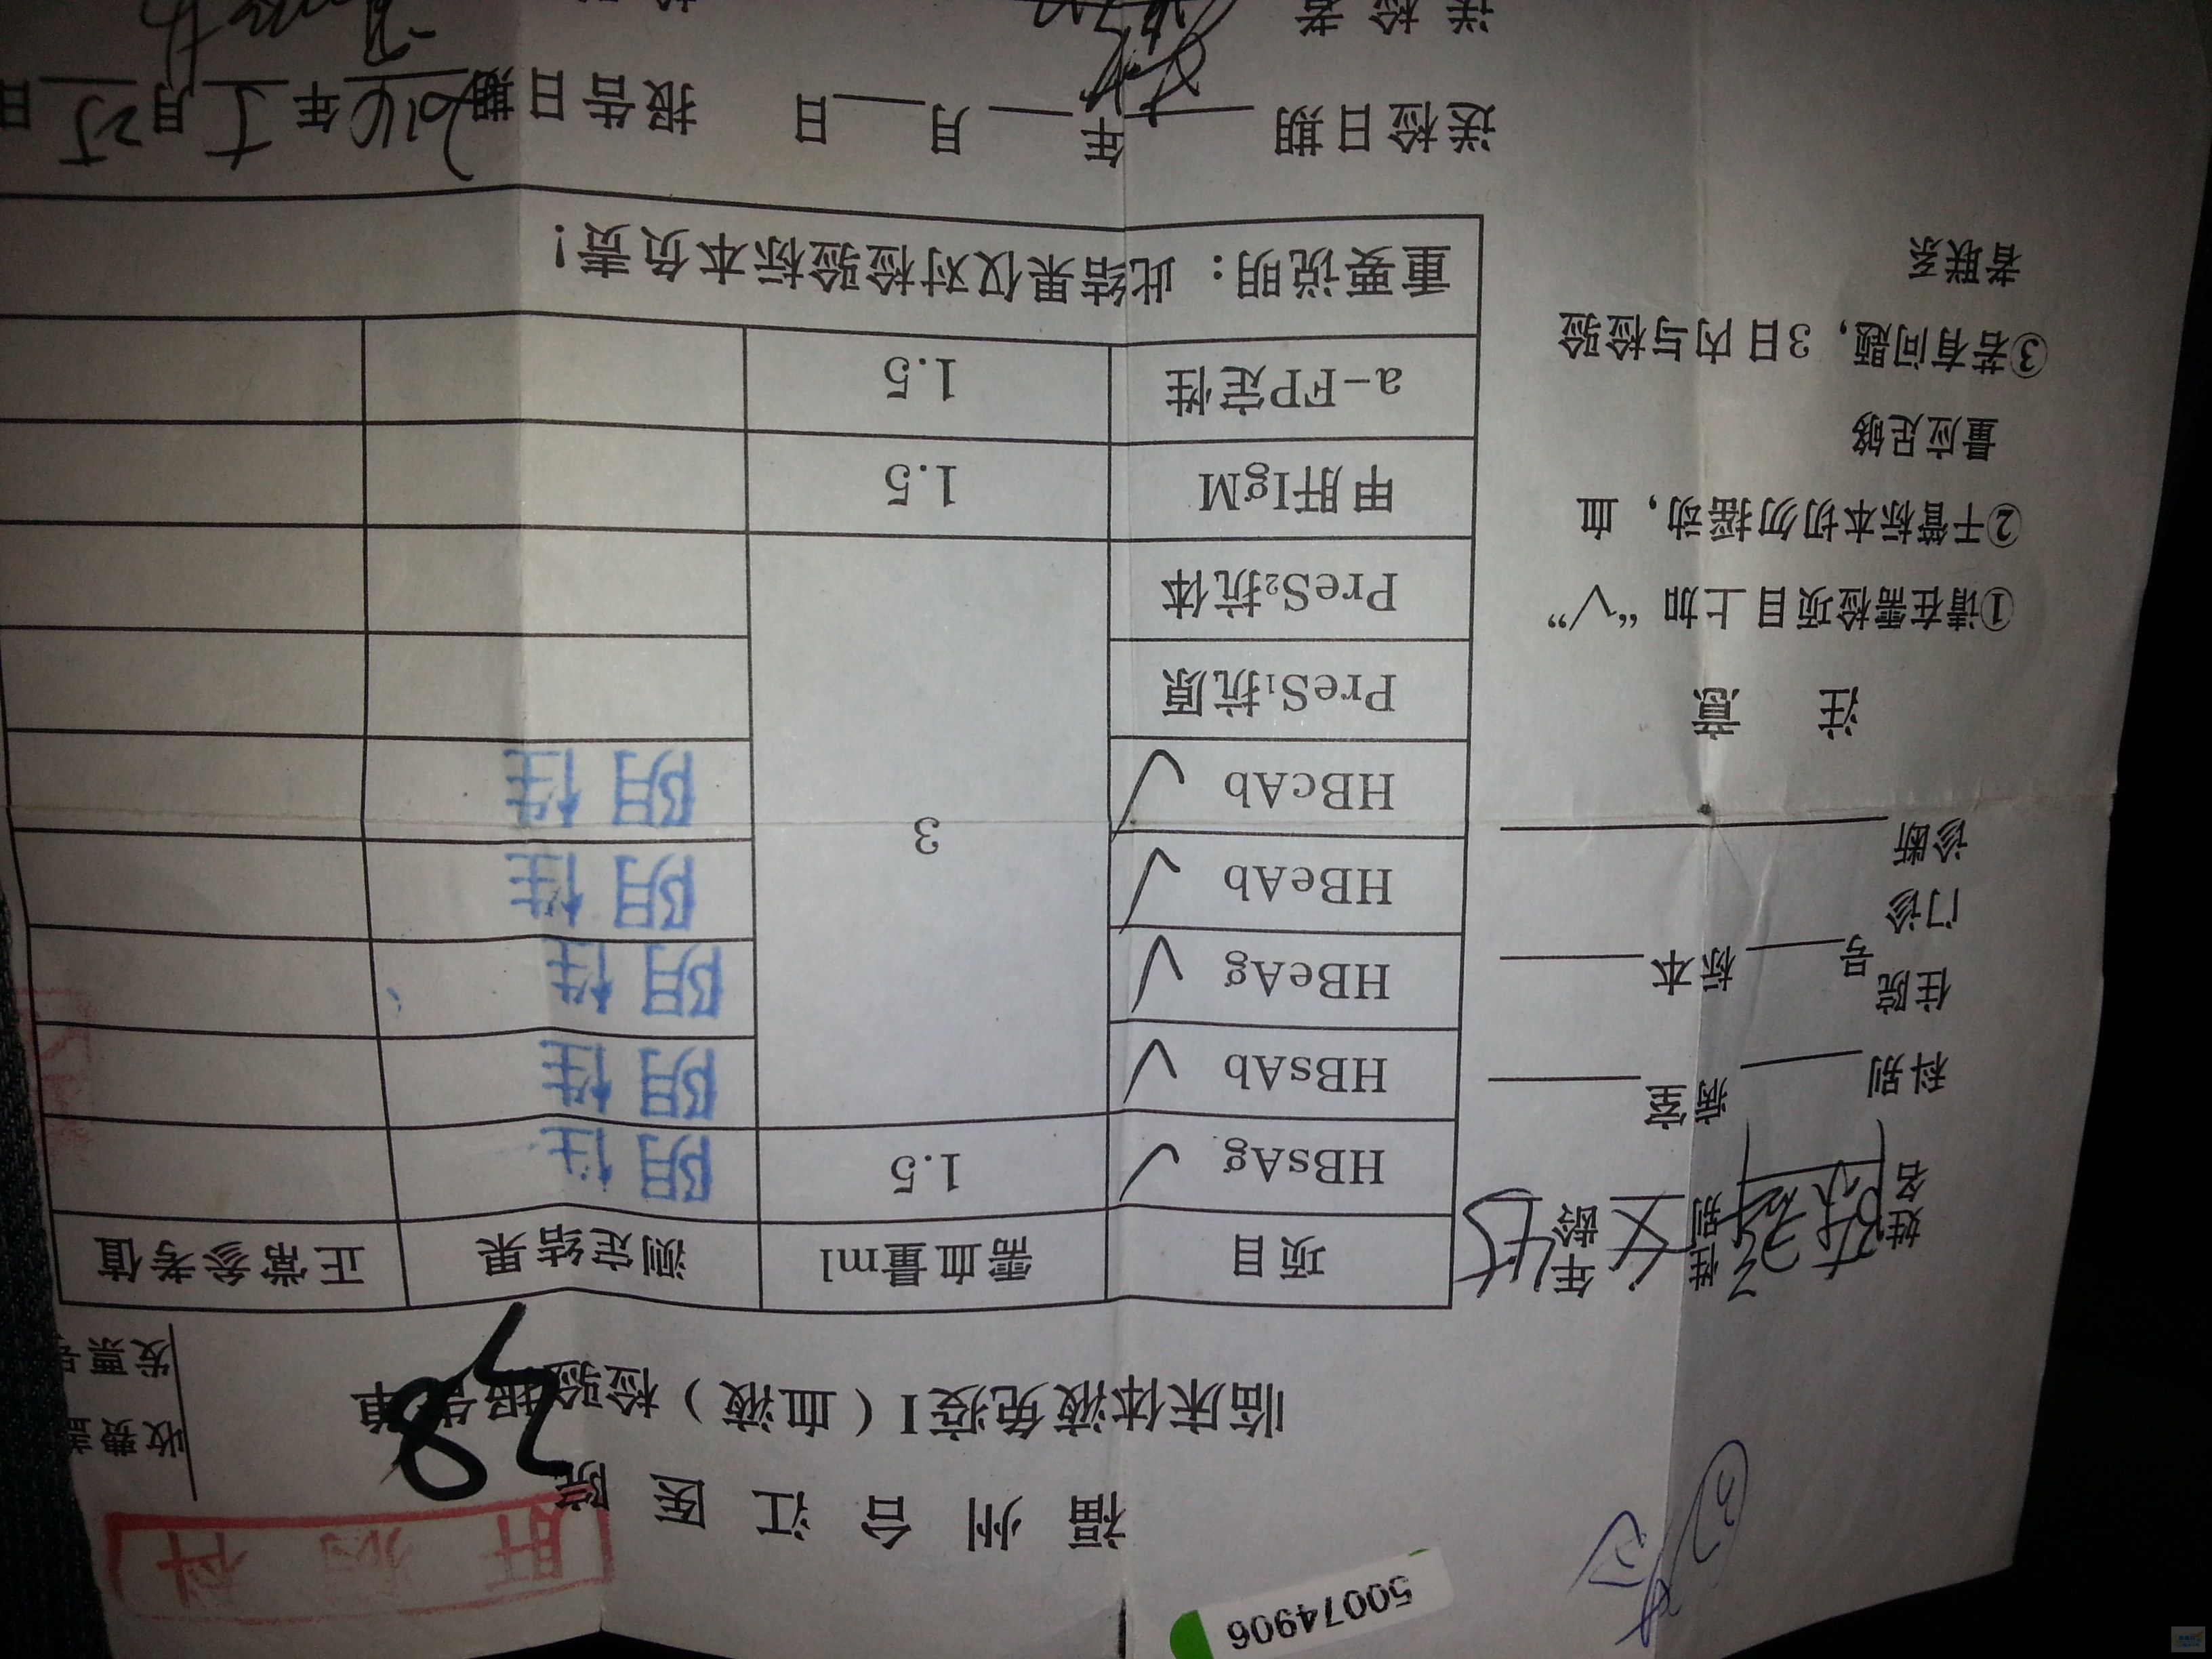 50074906
福州台江医院
肝病科
临床体液免疫I(血液)检验报告单
38
收费
发票
姓名 性别 女 年龄 45
科别 病室
住院
门诊 号 标本
诊断
注 意
①请在需检项目上加“√”
②干管标本切勿摇动，血
量应足够
③若有问题，3日内与检验
者联系
项目 需血量ml 测定结果 正常参考值
HBsAg √ 1.5 阴性
HBsAb √ 3 阴性
HBeAg √ 阴性
HBeAb √ 阴性
HBcAb √ 阴性
PreS₁抗原
PreS₂抗体
甲肝IgM 1.5
a-FP定性 1.5
重要说明：此结果仅对检验标本负责！
送检日期 年 月 日 报告日期 2016年5月25日
送检者